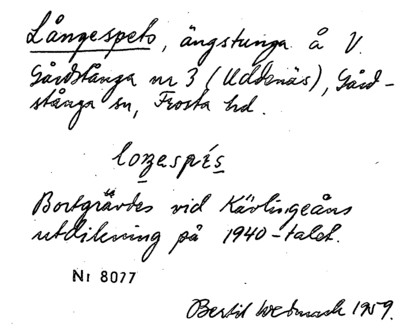 Långespets, ängstunga å V.
Gårdstånga nr 3 (Uddenäs), Gård-
stånga sn, Frosta hd.
loŋespés
Bortgrävdes vid Kävlingeåns
utdikning på 1940-talet.
Nr 8077
Bertil Wedmark 1959.